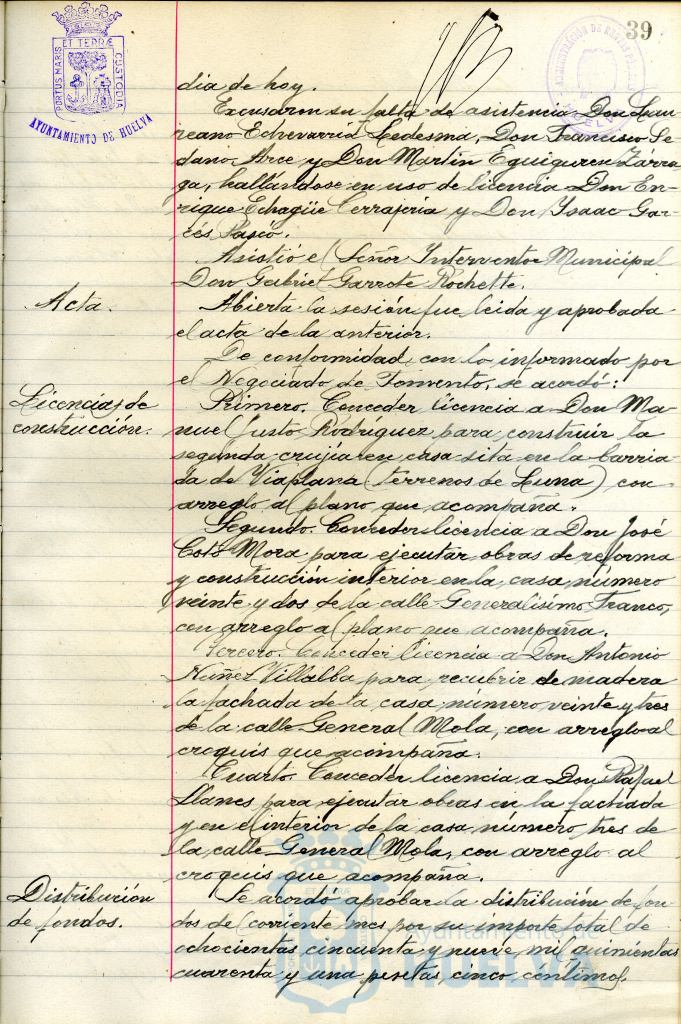 39
PORTUS MARIS ET TERRÆ CUSTODIA
AYUNTAMIENTO DE HUELVA
HUELVA
dia de hoy.
Excusaron su falta de asistencia Don Lau-
reano Echevarría Ledesma, Don Francisco Se-
dano Arce y Don Martín Eguiguren Zárra-
ga, hallándose en uso de licencia Don En-
rique Echagüe Cerrajería y Don Isaac Gar-
cés
Asistió el Señor Interventor Municipal
Don Gabriel Garrote Rochette.
Acta.
Abierta la sesión fue leida y aprobada
el acta de la anterior.
De conformidad con lo informado por
el Negociado de Fomento, se acordó:
Licencias de
construcción.
Primero. Conceder licencia a Don Ma-
nuel Justo Rodriguez para construir la
segunda crujía en casa sita en la barria-
da de Viaplana (terrenos de Luna) con
arreglo al plano que acompaña.
Segundo. Conceder licencia a Don José
Coto Mora para ejecutar obras de reforma
y construcción interior en la casa número
veinte y dos de la calle Generalísimo Franco,
con arreglo al plano que acompaña.
Tercero. Conceder licencia a Don Antonio
Núñez Villalba para recubrir de madera
la fachada de la casa número veinte y tres
de la calle General Mola, con arreglo al
croquis que acompaña.
Cuarto. Conceder licencia a Don Rafael
Llanes para ejecutar obras en la fachada
y en el interior de la casa número tres de
la calle General Mola, con arreglo al
croquis que acompaña.
Distribución
de fondos.
Se acordó aprobar la distribución de fon-
dos del corriente mes por su importe total de
ochocientas cincuenta y nueve mil quinientas
cuarenta y una pesetas, cinco céntimos.
Ayuntamiento de
HUELVA